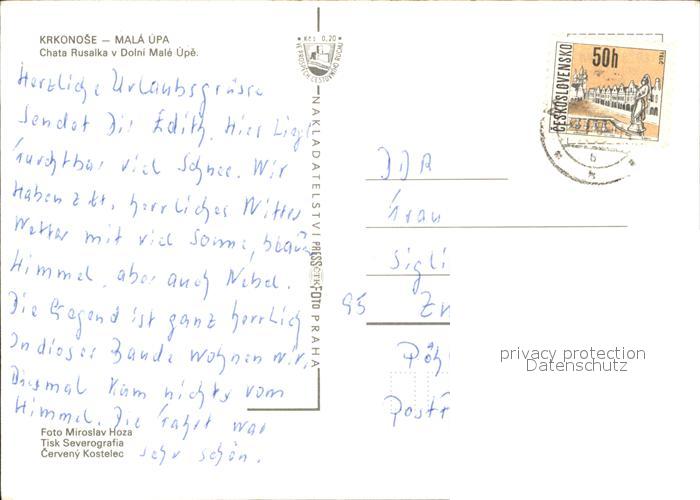 KRKONOŠE — MALÁ ÚPA
Chata Rusalka v Dolní Malé Úpě.
Kčs 0,20
VE PROSPĚCH CESTOVNÍHO RUCHU
ČESKOSLOVENSKO
50h
TELČ
Herzliche Urlaubsgrüsse
Sendet Dir Edith. Hier Liegt
furchtbar viel Schnee. Wir
Haben z.Zt. herrliches Witter
Wetter mit viel Sonne, blauen
Himmel, aber auch Nebel.
Die Gegend ist ganz herrlich
In dieser Baude wohnen wir.
Diesmal kam nichts vom
Himmel. Die Fahrt war
sehr schön.
NAKLADATELSTVÍ PRESSFOTO PRAHA
ČTK
DDR
Frau
Sigli
95 Zw
Pöh
Postf
privacy protection
Datenschutz
Foto Miroslav Hoza
Tisk Severografia
Červený Kostelec